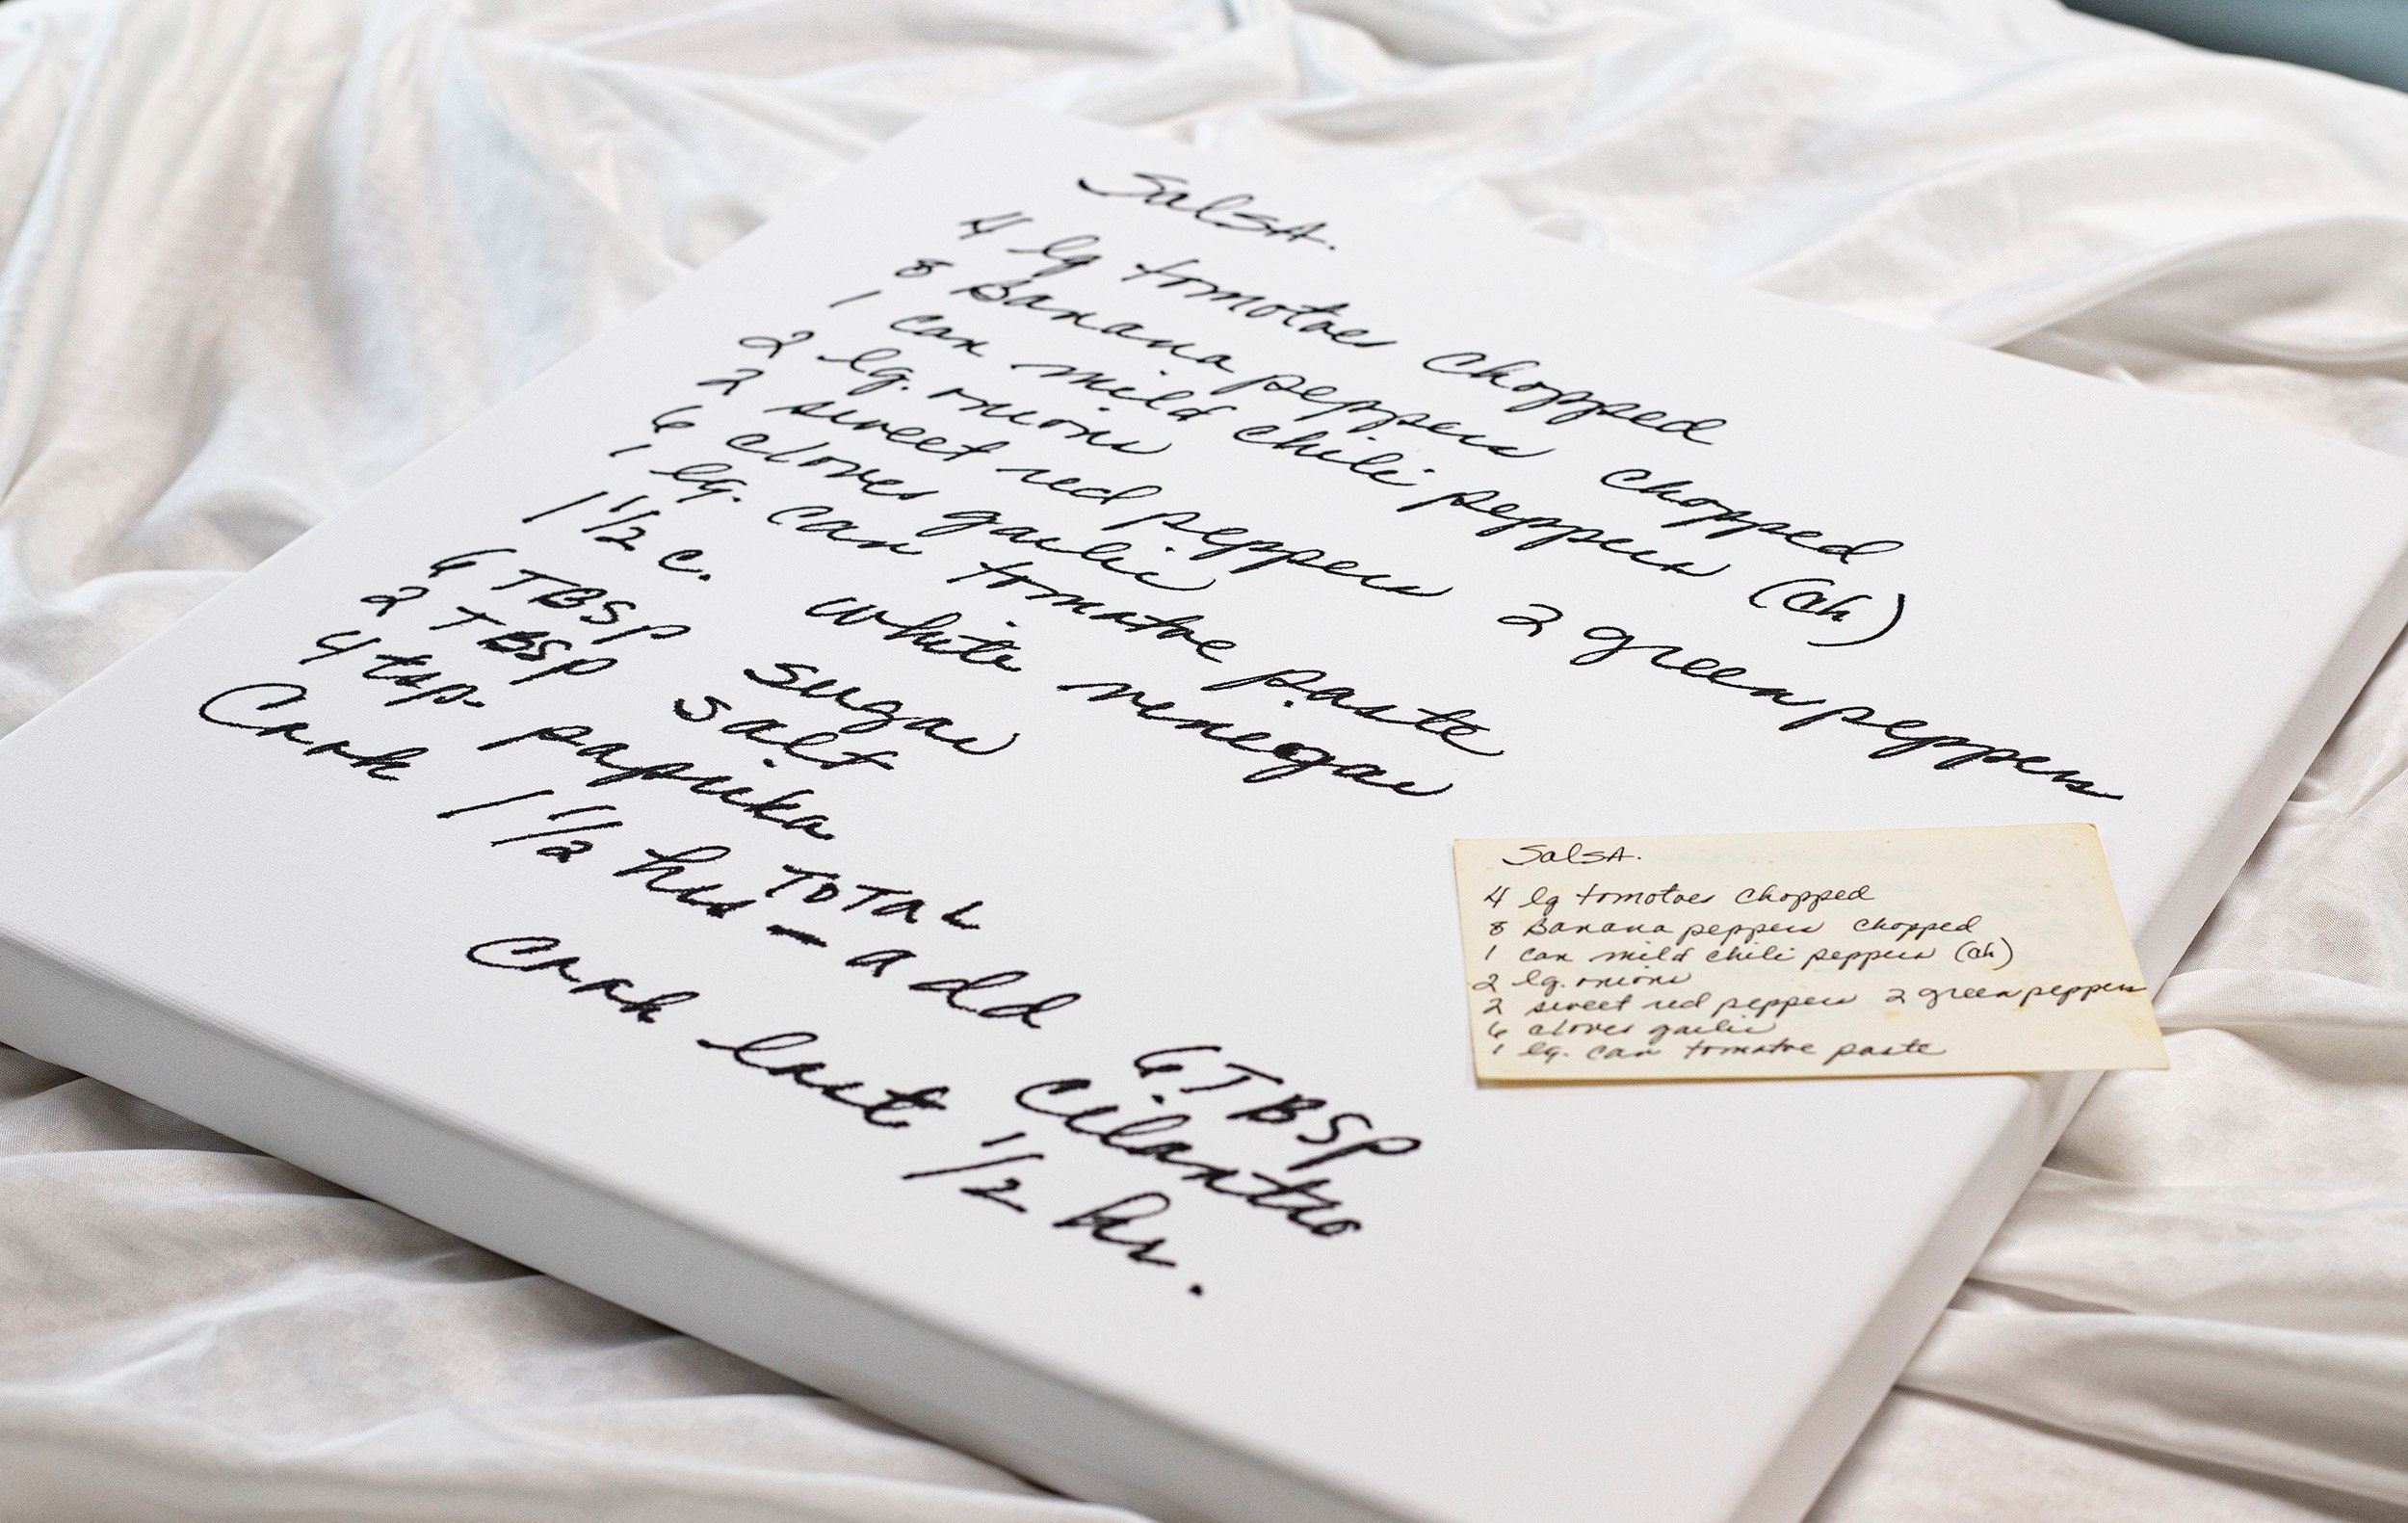 SalSA.
4 lg tomotoes chopped
8 Banana peppers chopped
1 can mild chili peppers (ch)
2 lg. onions
2 sweet red peppers 2 green peppers
6 cloves garlic
1 lg. can tomatoe paste
1 1/2 c. white vinegar
6 TBSP sugar
2 TBSP salt
4 tsp. paprika
TOTAL
Cook 1 1/2 hrs - add 6 TBSP
cilantro
Cook last 1/2 hr.
SalSA.
4 lg tomotoes chopped
8 Banana peppers chopped
1 can mild chili peppers (ch)
2 lg. onions
2 sweet red peppers 2 green peppers
6 cloves garlic
1 lg. can tomatoe paste